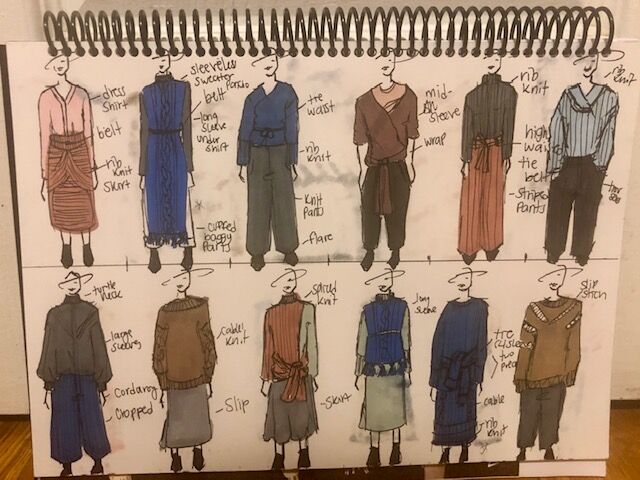 dress
shirt
belt
rib
knit
skirt
sleeveless
sweater
belt
long
sleeve
under
shirt
baggy
pants
tie
waist
rib
knit
knit
pants
flare
mid-
sleeve
wrap
rib
knit
high
waist
tie
belt
striped
pants
rib
knit
turtle
neck
large
sleeves
corduroy
cropped
cable
knit
slip
knit
skirt
long
sleeve
tie
two
cable
rib
knit
slip
stich